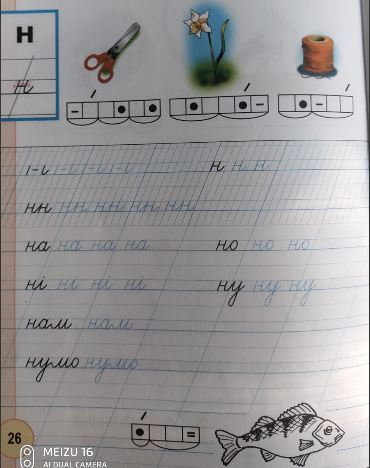 Н
н
н н н
нн нн нн нн нн
на на на на но но но
ні ні ні ні ну ну ну
нам нам
нумо нумо
26
MEIZU 16
AI DUAL CAMERA